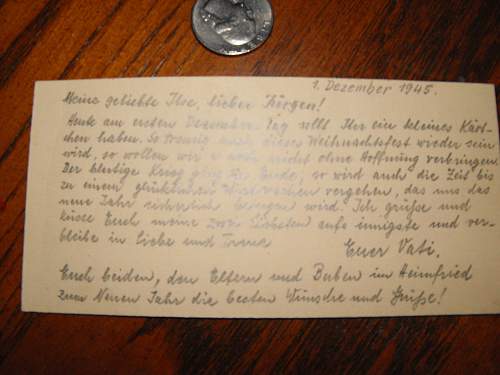 1. Dezember 1945.
Meine geliebte Ilse, lieber Jürgen!
Heute am ersten Dezember Tag sollt Ihr ein kleines Kärt-
chen haben. So traurig auch dieses Weihnachtsfest wieder sein
wird, so wollen wir es nicht ohne Hoffnung verbringen.
Der blutige Krieg ging zu Ende, so wird auch die Zeit bis
zu einem glücklichen vergehen, das uns das
neue Jahr sicherlich bringen wird. Ich grüße und
küsse Euch meine zwei Liebsten aufs innigste und ver-
bleibe in Liebe und Treue
Euer Vati.
Euch beiden, den Eltern und Buben in Heimfried
zum Neuen Jahr die besten Wünsche und Grüße!